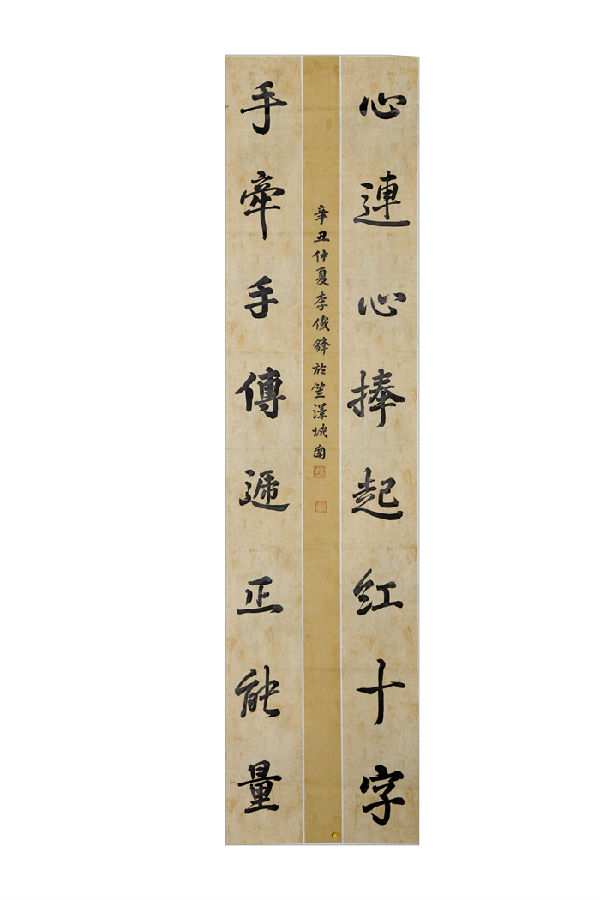 心連心捧起红十字
手牽手傳遞正能量
辛丑仲夏李俊鋒於笠澤城南